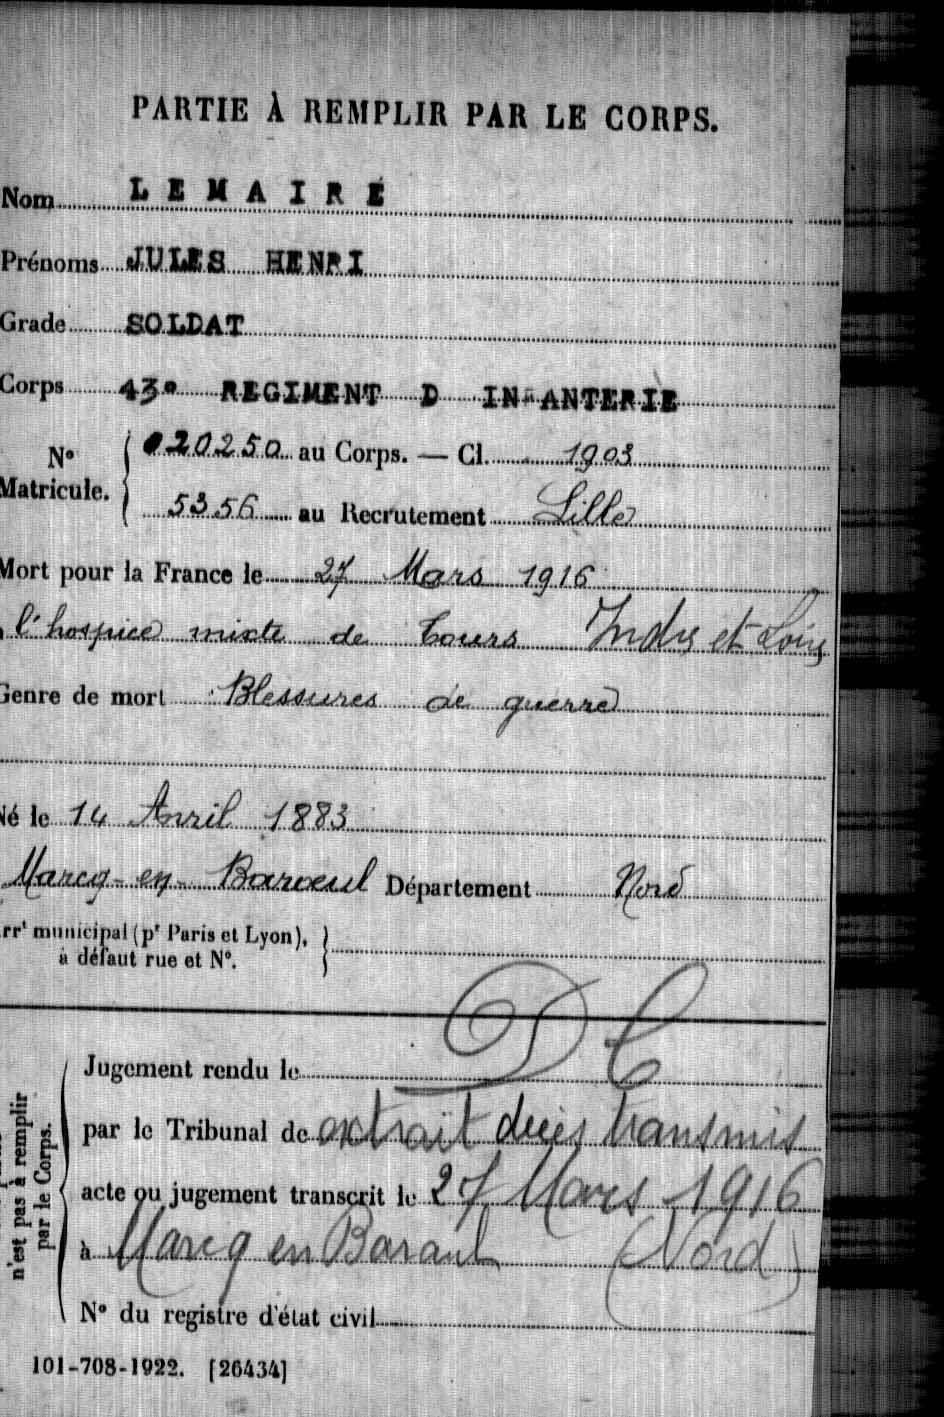 PARTIE À REMPLIR PAR LE CORPS.
Nom LEMAIRE
Prénoms JULES HENRI
Grade SOLDAT
Corps 43e REGIMENT D INFANTERIE
No Matricule. { 020250 au Corps. — Cl. 1903
5356 au Recrutement Lille
Mort pour la France le 27 Mars 1916
à l'hospice mixte de Tours Indre et Loire
Genre de mort Blessures de guerre
Né le 14 Avril 1883
Marcq-en-Baroeul Département Nord
Arrt municipal (pr Paris et Lyon), à défaut rue et No. }
DC
n'est pas à remplir par le Corps.
Jugement rendu le
par le Tribunal de extrait décès transmis
acte ou jugement transcrit le 27 Mars 1916
à Marcq en Baraul (Nord)
No du registre d'état civil
101-708-1922. [26434]